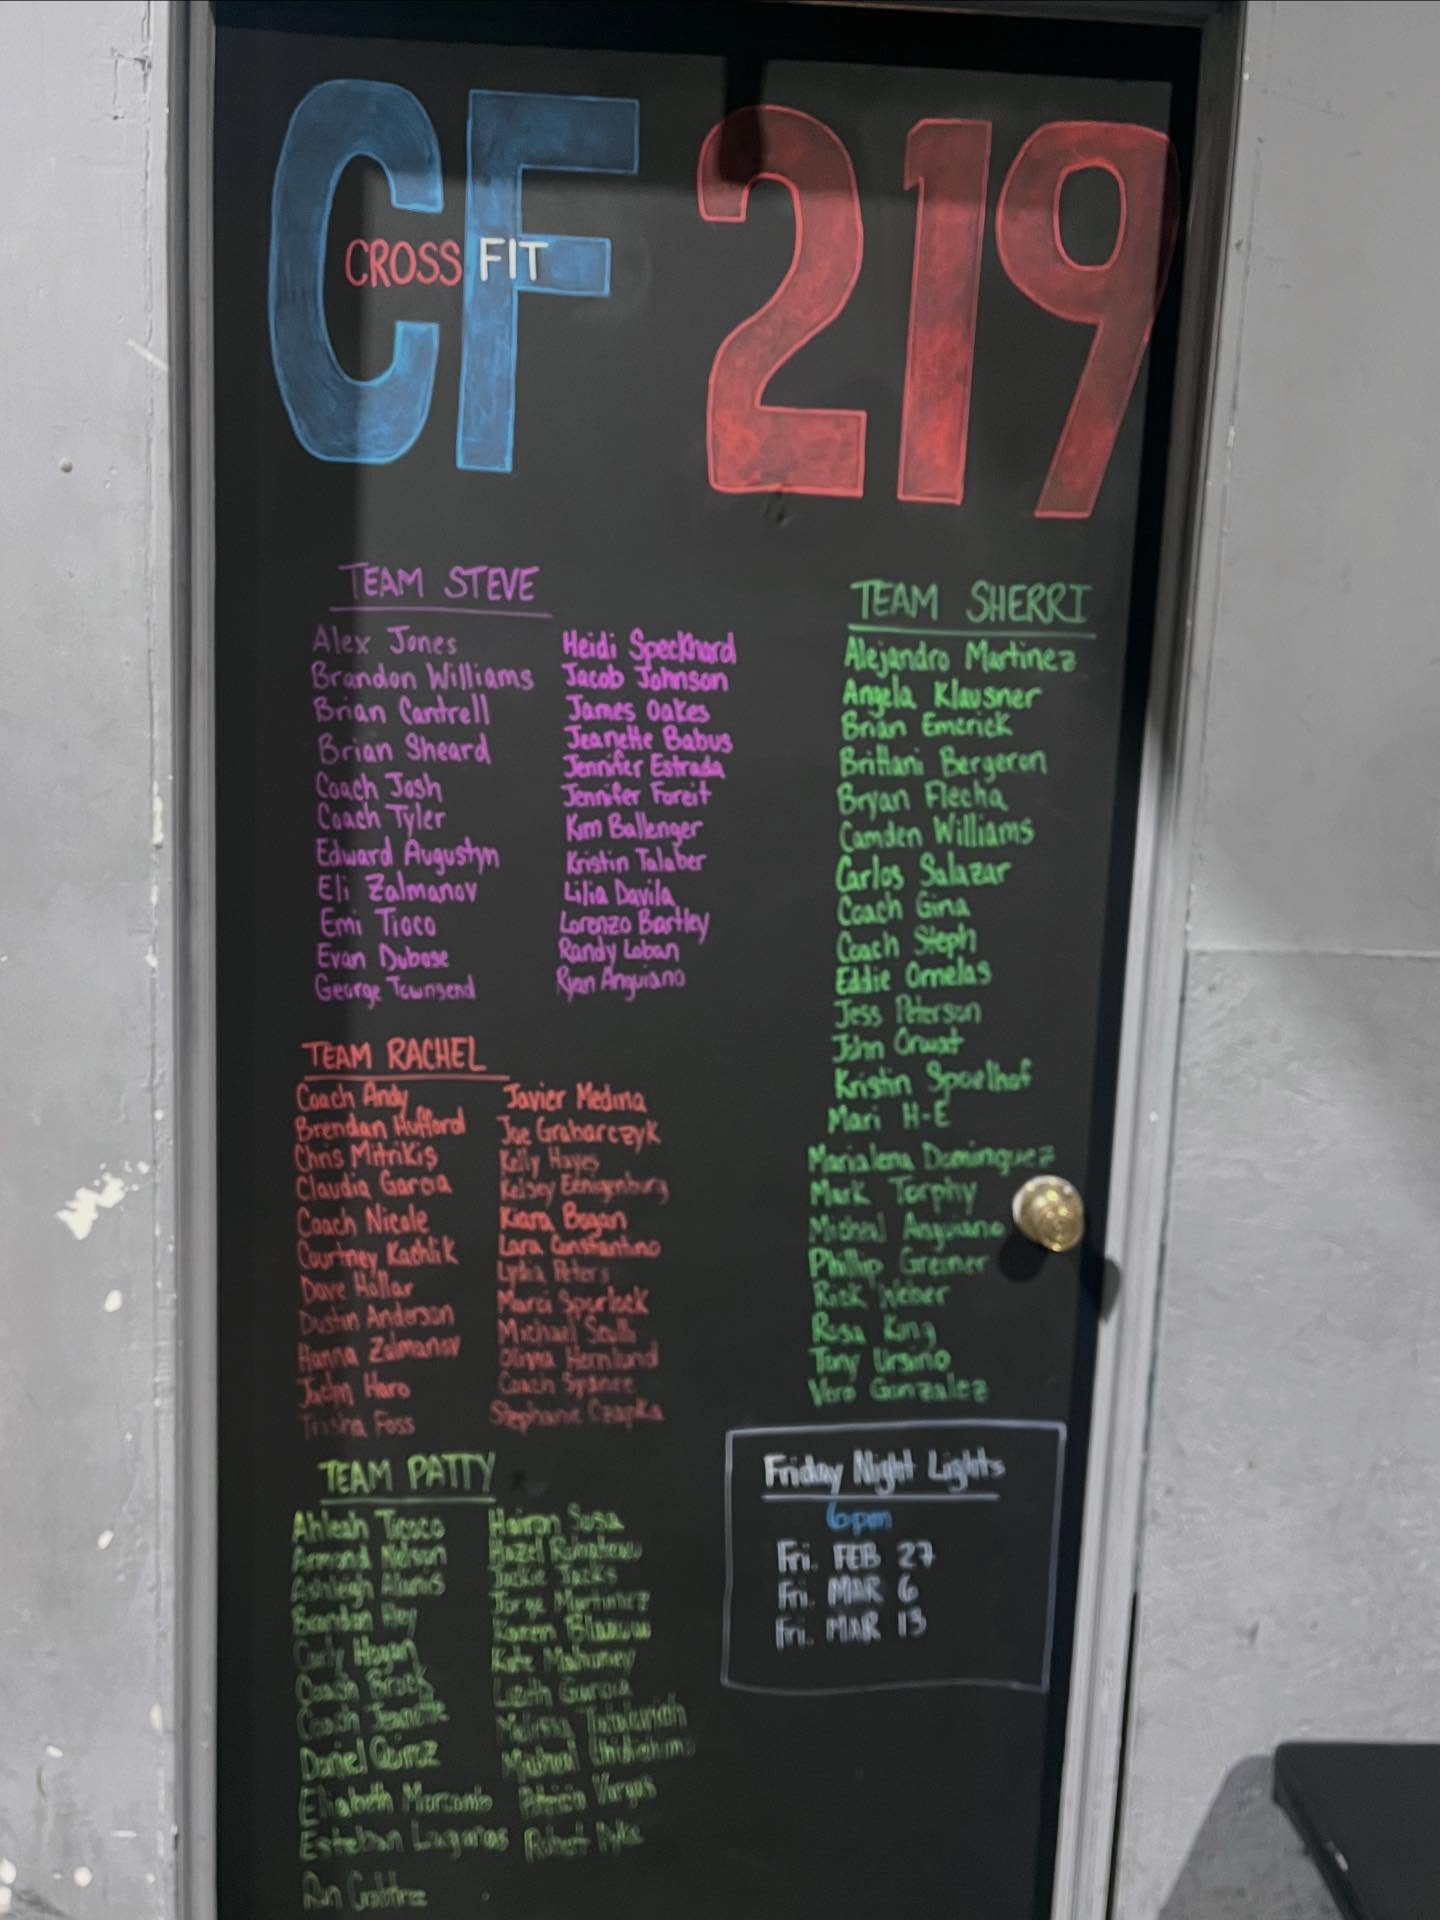 CF 219
CROSSFIT
TEAM STEVE
Alex Jones
Brandon Williams
Brian Cantrell
Brian Sheard
Coach Josh
Coach Tyler
Edward Augustyn
Eli Zalmanov
Emi Tioco
Evan Dubose
George Townsend
Heidi Speckhard
Jacob Johnson
James Oakes
Jeanette Babus
Jennifer Estrada
Jennifer Foreit
Kim Ballenger
Kristin Talaber
Lilia Davila
Lorenzo Bartley
Randy Loban
Ryan Anguiano
TEAM SHERRI
Alejandro Martinez
Angela Klausner
Brian Emerick
Brittani Bergeron
Bryan Flecha
Camden Williams
Carlos Salazar
Coach Gina
Coach Steph
Eddie Ornelas
Jess Peterson
John Orwat
Kristin Spoelhof
Mari H-E
Marialena Dominguez
Mark Torphy
Micheal Anguiano
Phillip Greiner
Rick Weber
Rosa King
Tony Ursino
Vero Gonzalez
TEAM RACHEL
Coach Andy
Brendan Hufford
Chris Mitrikis
Claudia Garcia
Coach Nicole
Courtney Kachlik
Dave Hollar
Dustin Anderson
Hanna Zalmanov
Jaclyn Haro
Trisha Foss
Javier Medina
Joe Grabarczyk
Kelly Hayes
Kelsey Eenigenburg
Kiara Bogan
Lara Constantino
Lydia Peters
Marci Spurlock
Michael
Olivia Hernlund
Coach
Stephanie Czapka
TEAM PATTY
Ahleah Tioco
Armond Nelson
Ashleigh Alanis
Brandon
Carly Hogan
Coach Brock
Coach Jeanette
Daniel Quiroz
Elizabeth
Esteban Lagunas
Ron Crabtree
Sosa
Hazel
Jackie Jacks
Jorge Martinez
Karen
Kate Mahoney
Lizeth Garcia
Melissa
Michael
Patricia Vargas
Robert
Friday Night Lights
6pm
Fri. FEB 27
Fri. MAR 6
Fri. MAR 13